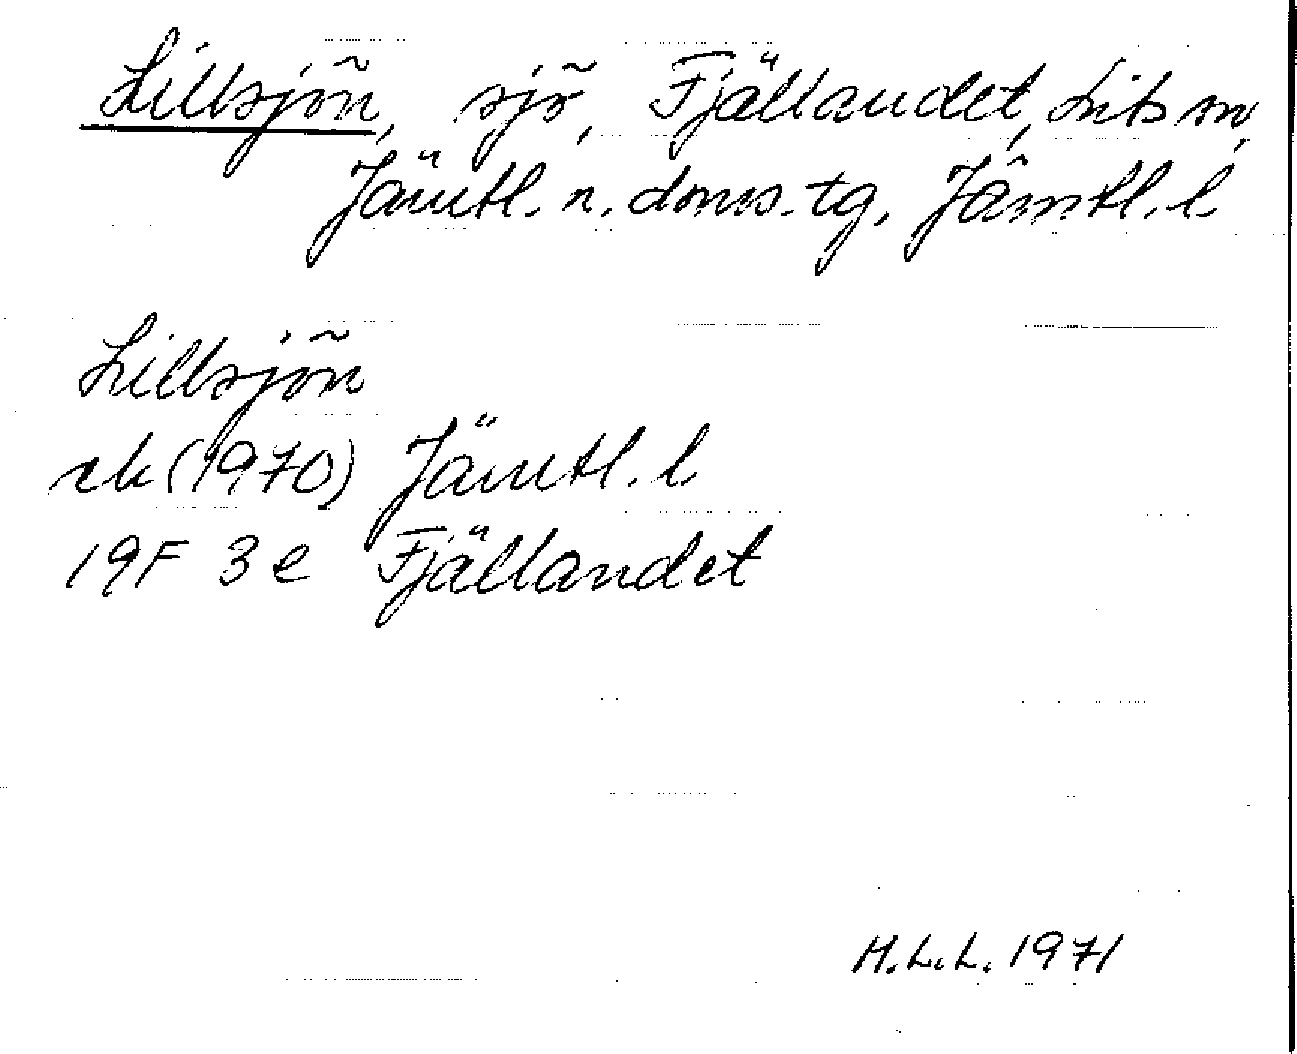 Lillsjön, sjö, Fjällandet, Lits sn,
Jämtl. n. doms. tg, Jämtl. l
Lillsjön
rk (1970) Jämtl. l
19F 3e Fjällandet
H.L.L. 1971